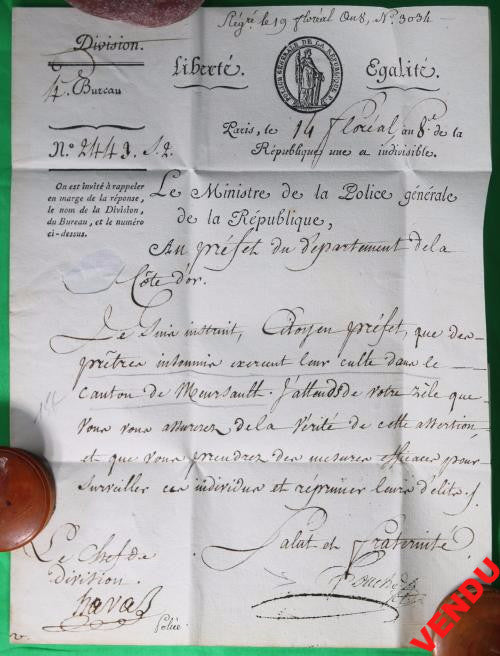 le 19 floréal an 8, N.º 3034
Division.
4. Bureau
N.º 2443. S.2
On est invité à rappeler
en marge de la réponse,
le nom de la Division,
du Bureau, et le numéro
ci-dessus.
Liberté.
Egalité.
POLICE GÉNÉRALE DE LA RÉPUBLIQUE
Paris, le 14 floréal, an 8.e de la
République une et indivisible.
Le Ministre de la Police générale
de la République,
Au préfet du département de la
Côte d'or.
Je suis instruit, Citoyen préfet, que des
prêtres insoumis exercent leur culte dans le
canton de Meursault. J'attends de votre zèle que
vous vous assurerez de la vérité de cette assertion,
et que vous prendrez des mesures efficaces pour
surveiller ces individus et réprimer leurs délits.
Salut et fraternité.
Le Chef de
division.
Fouché
VENDU